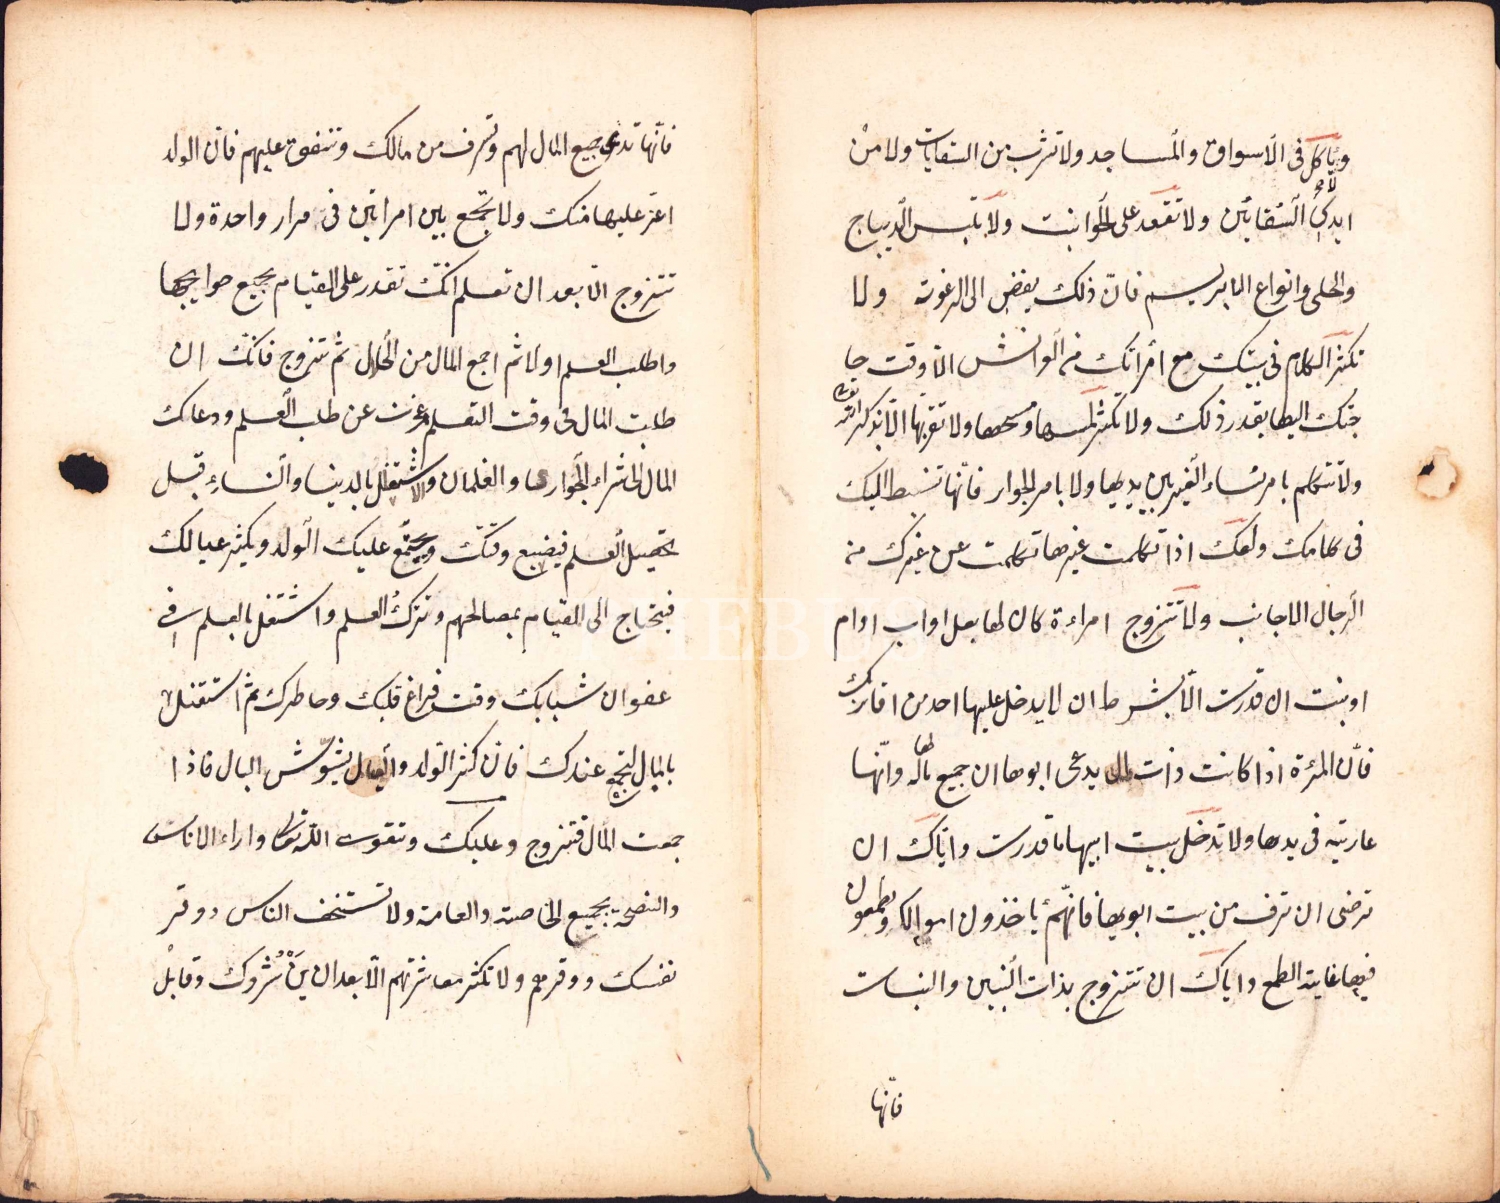 ويأكل فى الأسواق والمساجد ولا تشرب من السقايات ولا من
ايدى السقائين ولا تقعد على الحوانيت ولا تلبس الديباج
والحلى وانواع الابريسم فان ذلك يفضى الى الرعونة ولا
تكثر الكلام فى بيتك مع امرأتك فى الفراش الا وقت حا
جتك اليها بقدر ذلك ولا تكثر لمسها ومسحها ولا تقربها الا بذكر الله تعالى
ولا تتكلم بامر نساء الغير بين يديها ولا بامر الجوار فانها تنبسط اليك
فى كلامك ولعلك اذا تكلمت غيرها تكلمت عن غيرك من
الرجال الاجانب ولا تتزوج امراءة كان لها بعل او اب او ام
او بنت ان قدرت الا بشرط ان لا يدخل عليها احد من اقاربك
فان المرءة اذا كانت ذات مال يدعى ابوها ان جميع مالها له وانها
عارية فى يدها ولا تدخل بيت ابيها ما قدرت واياك ان
ترضى ان تزف من بيت ابويها فانهم ياخذون اموالك ويطمعون
فيها غاية الطمع واياك ان تتزوج بذات البنين والبنات
فانها
فانها تدعى جميع المال لهم وتسرف من مالك وتنفق عليهم فان الولد
اعز عليها منك ولا تجمع بين امراتين فى دار واحدة ولا
تتزوج الا بعد ان تعلم انك تقدر على القيام بجميع حوايجها
واطلب العلم اولا ثم اجمع المال من الحلال ثم تتزوج فانك ان
طلبت المال فى وقت التعلم عجزت عن طلب العلم ودعاك
المال الى شراء الجوارى والغلمان والاشتغال بالدنيا والنساء قبل
تحصيل العلم فيضيع وقتك ويجتمع عليك الولد ويكثر عيالك
فيحتاج الى القيام بمصالحهم وتترك العلم واشتغل بالعلم فى
عنفوان شبابك وقت فراغ قلبك وخاطرك ثم اشتغل
بالمال ليجتمع عندك فان كثر الولد والعيال يشوش البال فاذا
جمعت المال فتزوج وعليك وتقوى الله تعالى واراء الاناس
والنصحة بجميع الخاصة والعامة ولا تستخف الناس ووقر
نفسك ووقرهم ولا تكثر معاشرتهم الا بعد ان يعاشروك وقابل